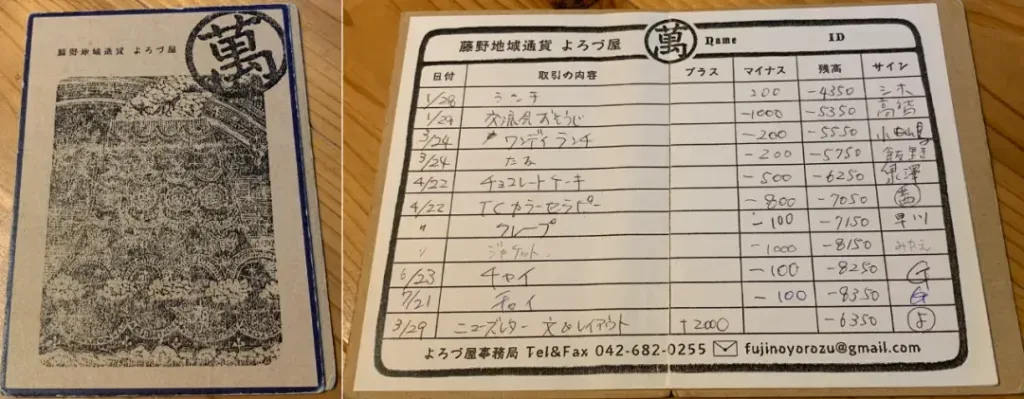 藤野地域通貨 よろづ屋
萬
藤野地域通貨 よろづ屋 萬 Name ID
日付 取引の内容 プラス マイナス 残高 サイン
1/28 ランチ 200 -4350 シホ
1/29 -1000 -5350 高橋
3/24 ワンディランチ -200 -5550
3/24 -200 -5750
4/22 チョコレートケーキ -500 -6250
4/22 TCカラーセラピー -800 -7050
〃 クレープ -100 -7150 早川
〃 ジャケット -1000 -8150 みかえ
6/23 チャイ -100 -8250
7/21 チャイ -100 -8350
3/29 ニューズレター 文&レイアウト +2000 -6350 よ
よろづ屋事務局 Tel&Fax 042-682-0255 fujinoyorozu@gmail.com